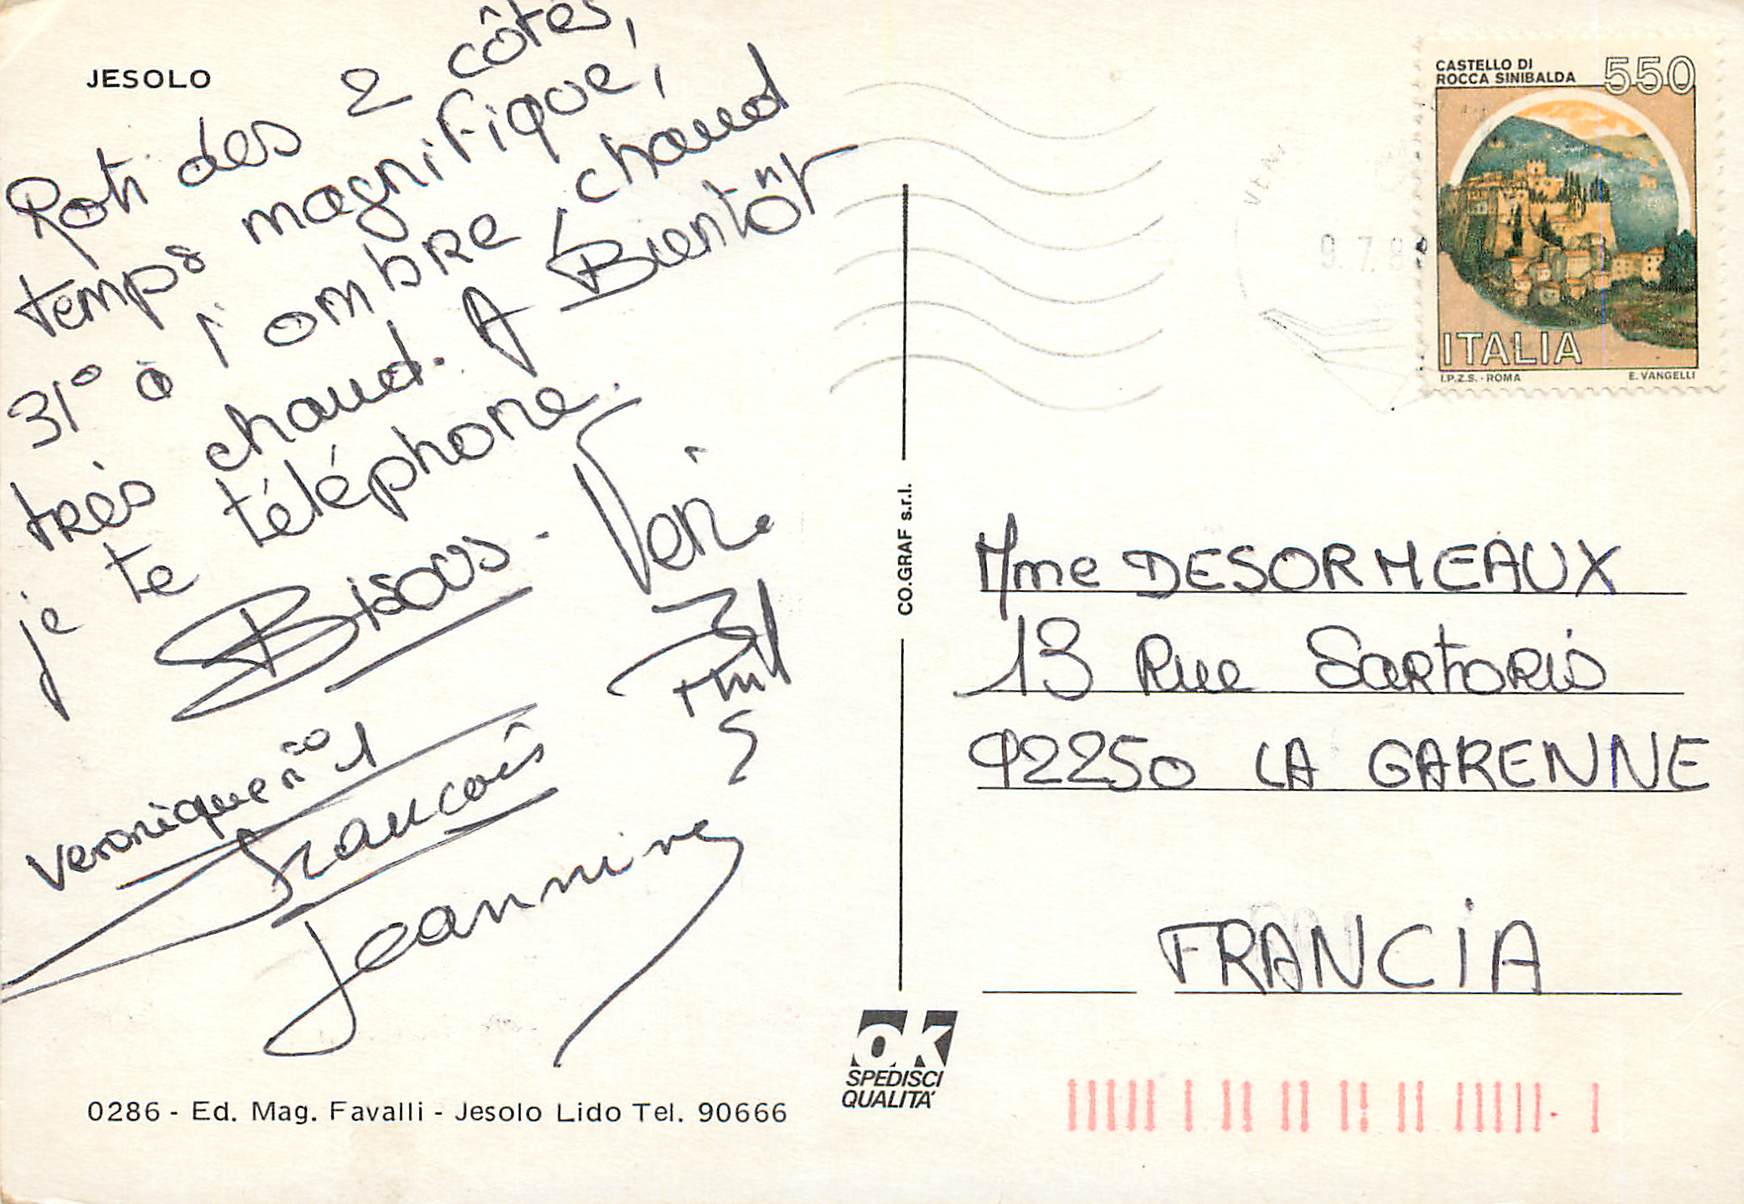 JESOLO
Roti des 2 côtés,
temps magnifique,
31° à l'ombre, chaud
très chaud. A Bientôt
je te téléphone.
Bisous.
Veronique n° 1
François
Jeannine
CASTELLO DI
ROCCA SINIBALDA
550
ITALIA
I.P.Z.S. - ROMA
E. VANGELLI
CO.GRAF s.r.l.
Mme DESORMEAUX
13 Rue Sartoris
92250 LA GARENNE
FRANCIA
OK
SPEDISCI
QUALITA'
0286 - Ed. Mag. Favalli - Jesolo Lido Tel. 90666